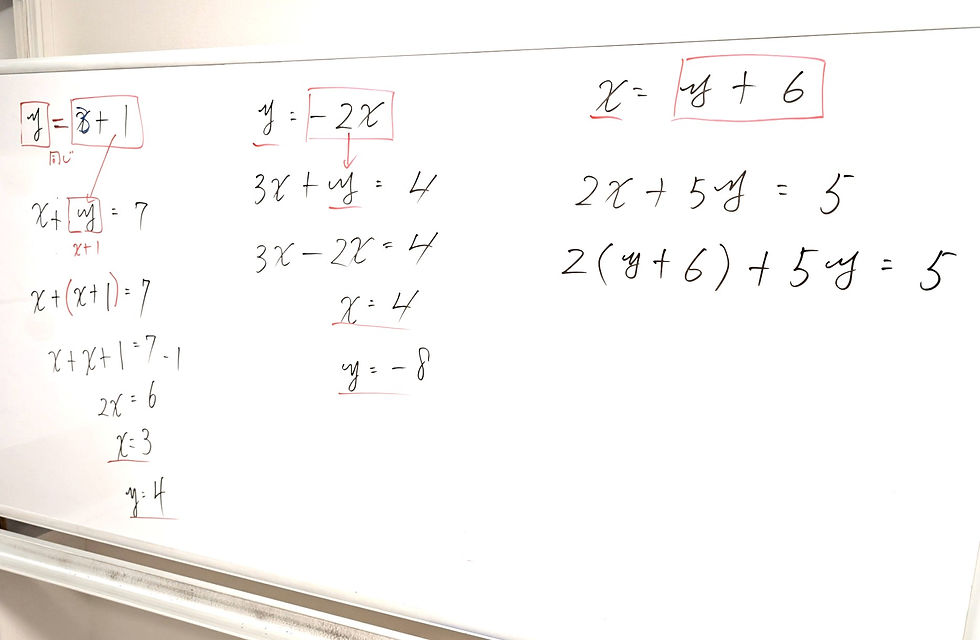 y = x + 1
同じ
x + y = 7
x+1
x + (x+1) = 7
x + x + 1 = 7 - 1
2x = 6
x = 3
y = 4
y = -2x
3x + y = 4
3x - 2x = 4
x = 4
y = -8
x = y + 6
2x + 5y = 5
2(y + 6) + 5y = 5